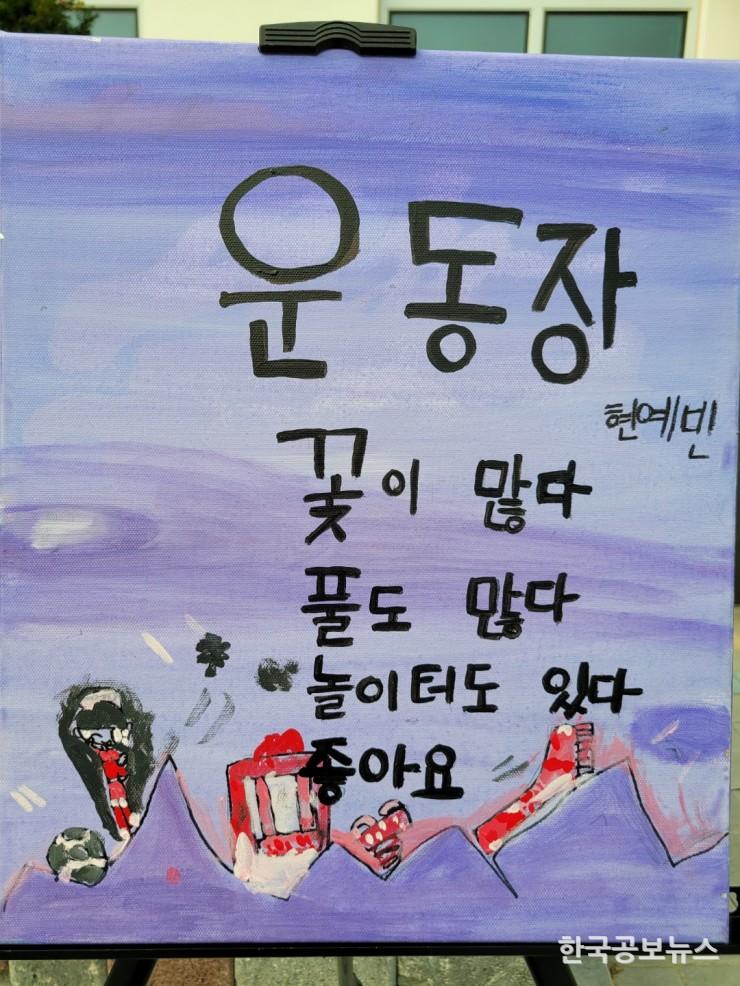 운동장
현예빈
꽃이 많다
풀도 많다
놀이터도 있다
좋아요
한국공보뉴스